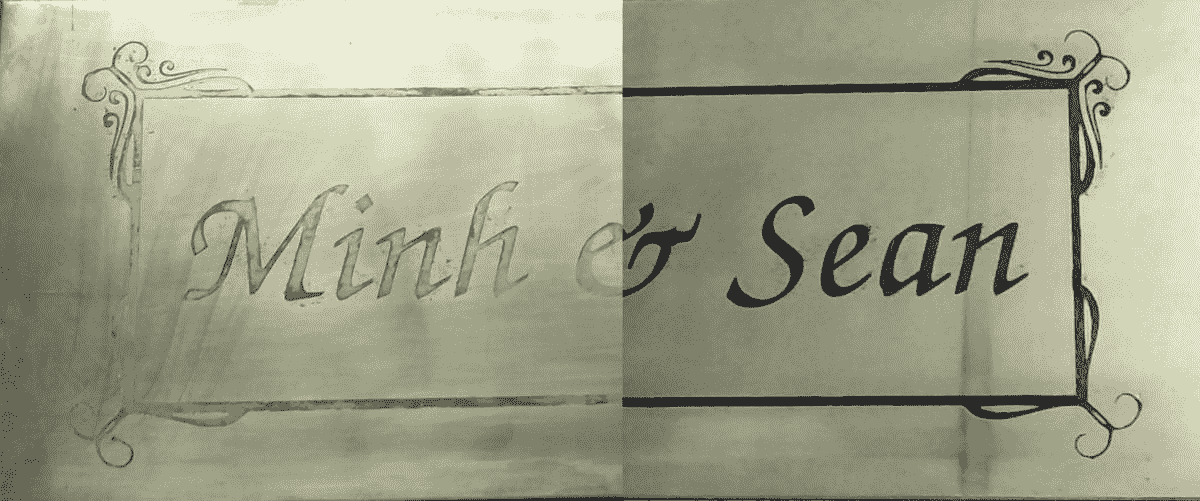 Minh & Sean